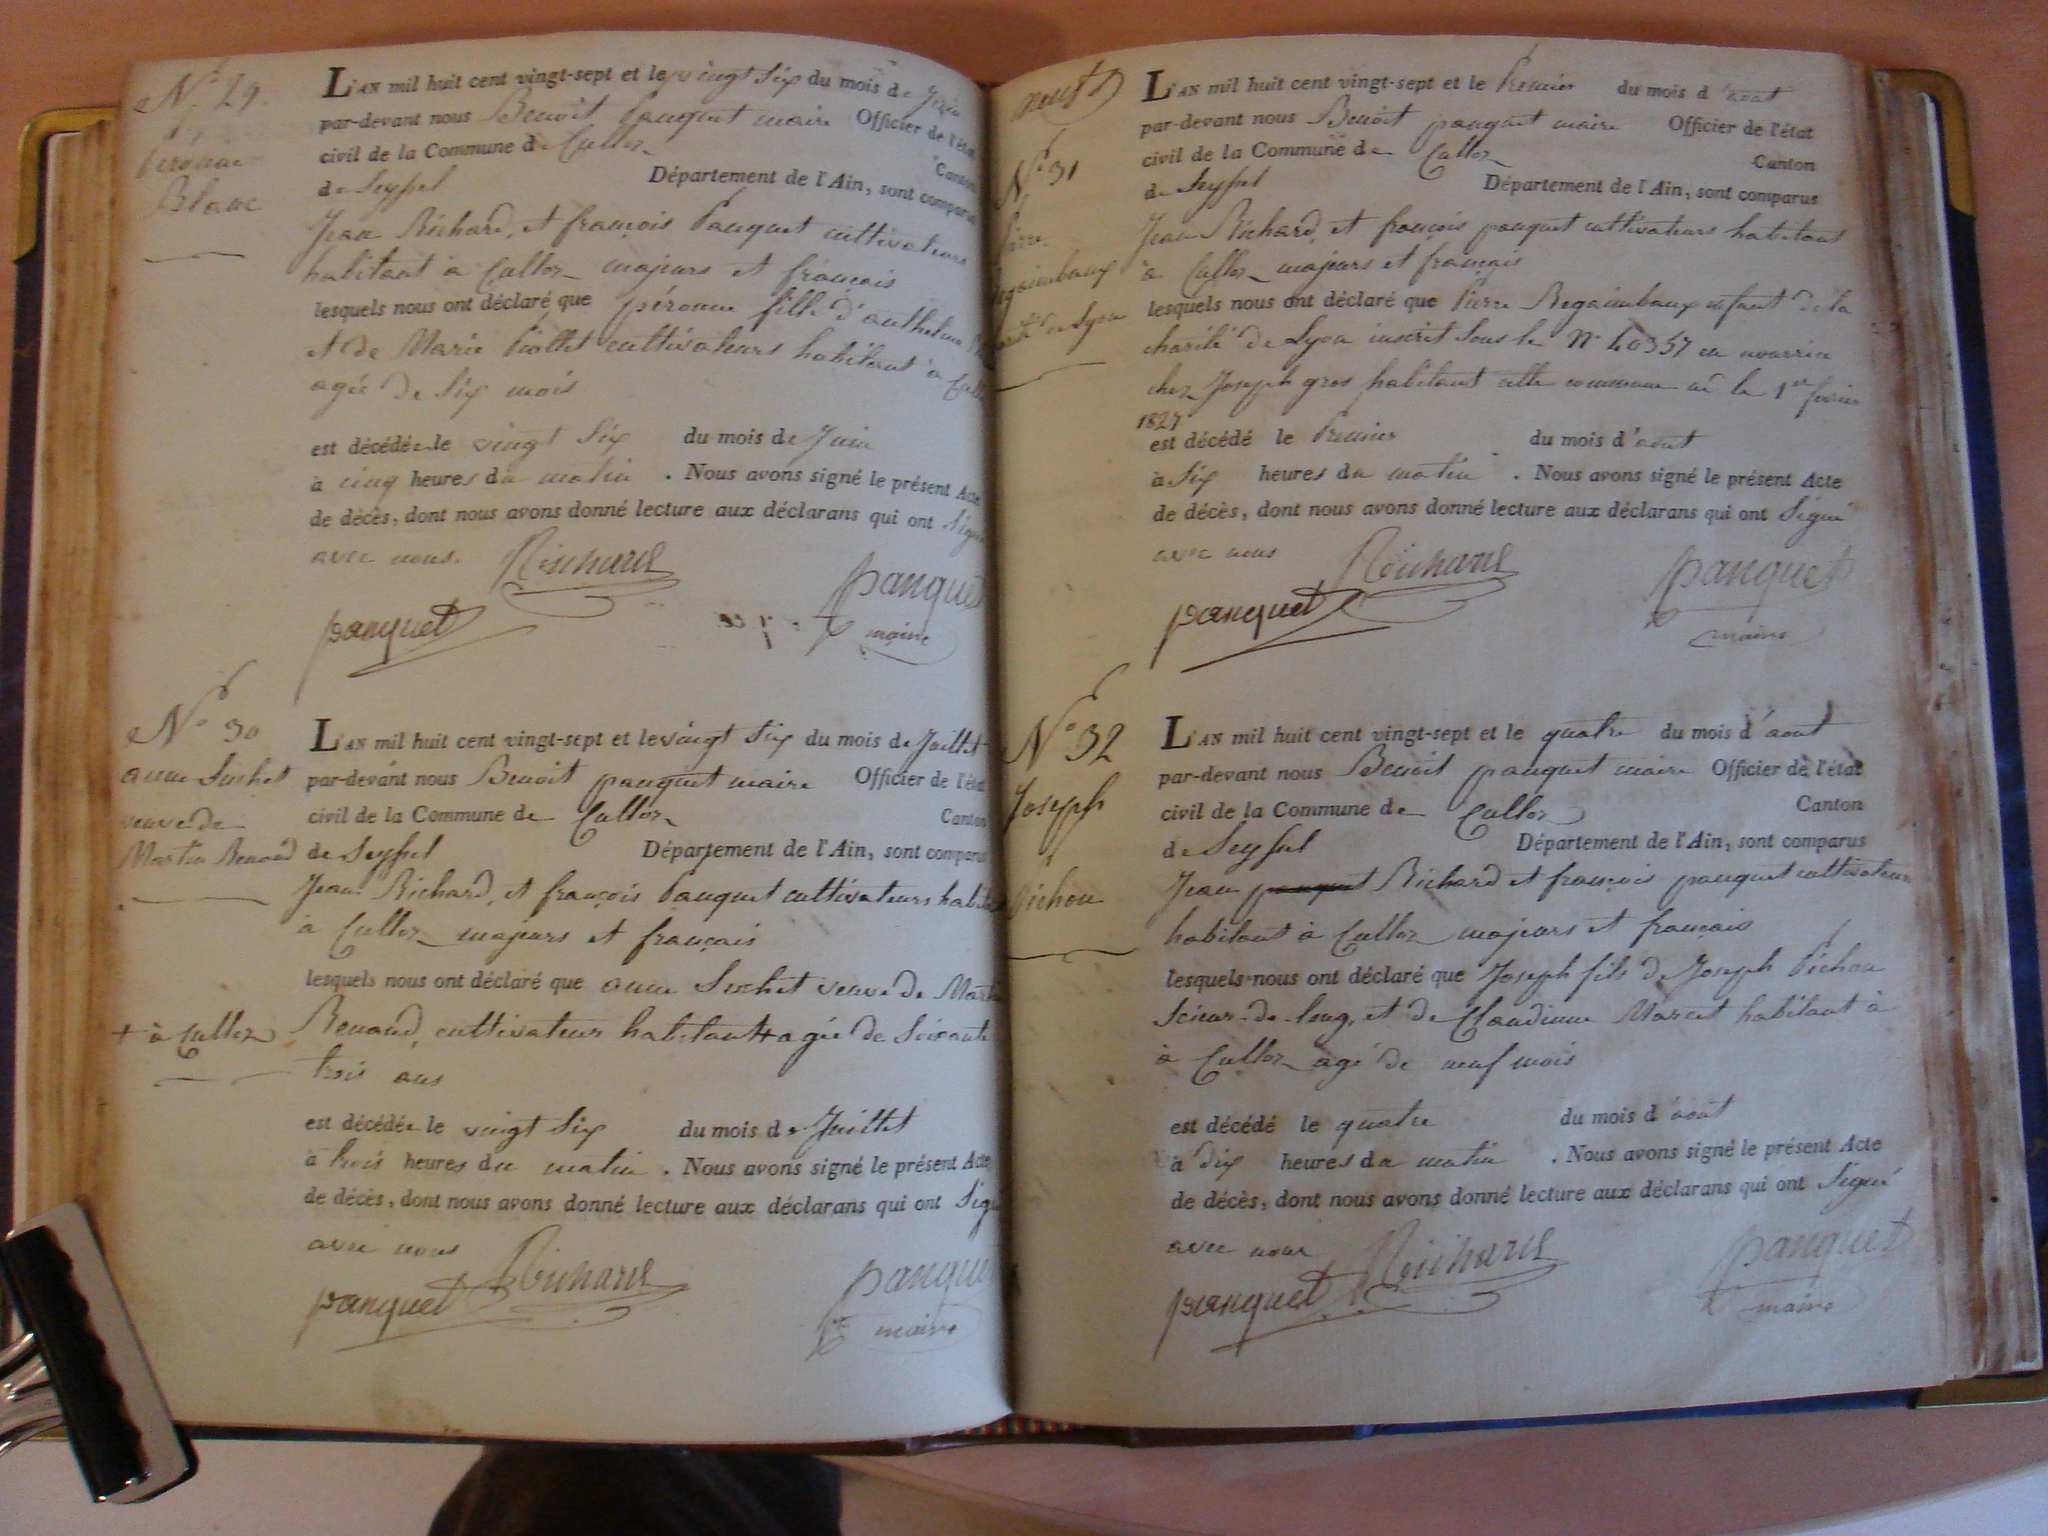 N° 29
péronne
Blanc
L'AN mil huit cent vingt-sept et le vingt six du mois de Juin
par-devant nous Benoit panquet maire Officier de l'état
civil de la Commune de Culloz Canton
de Seyssel Département de l'Ain, sont comparus
Jean Richard, et françois Panquet cultivateurs
habitant à Culloz majeurs et français
lesquels nous ont déclaré que péronne fille d'anthelme
et de Marie Piollet cultivateurs habitant à Culloz
agée de six mois
est décédée le vingt six du mois de Juin
à cinq heures du matin . Nous avons signé le présent Acte
de décès, dont nous avons donné lecture aux déclarans qui ont signé
avec nous. Richard panquet
panquet maire
N° 30
anne Suchet
veuve de
Martin Renaud
L'AN mil huit cent vingt-sept et le vingt six du mois de Juillet
par-devant nous Benoit panquet maire Officier de l'état
civil de la Commune de Culloz Canton
de Seyssel Département de l'Ain, sont comparus
Jean Richard, et françois Panquet cultivateurs habitant
à Culloz majeurs et français
lesquels nous ont déclaré que anne Suchet veuve de Martin
+ à Culloz Renaud, cultivateur habitant + agée de soixante
trois ans
est décédée le vingt six du mois de Juillet
à trois heures du matin . Nous avons signé le présent Acte
de décès, dont nous avons donné lecture aux déclarans qui ont signé
avec nous Richard panquet
panquet maire
aout
N° 31
Pierre
Regaimbaux
de Lyon
L'AN mil huit cent vingt-sept et le Premier du mois d'aout
par-devant nous Benoit panquet maire Officier de l'état
civil de la Commune de Culloz Canton
de Seyssel Département de l'Ain, sont comparus
Jean Richard, et françois panquet cultivateurs habitant
à Culloz majeurs et français
lesquels nous ont déclaré que Pierre Regaimbaux enfant de la
charité de Lyon inscrit sous le N° 40357 en nourrice
chez Joseph gros habitant cette commune né le 1er février
1827
est décédé le Premier du mois d'aout
à six heures du matin . Nous avons signé le présent Acte
de décès, dont nous avons donné lecture aux déclarans qui ont signé
avec nous Richard panquet
panquet maire
N° 32
Joseph
Pichon
L'AN mil huit cent vingt-sept et le quatre du mois d'aout
par-devant nous Benoit panquet maire Officier de l'état
civil de la Commune de Culloz Canton
de Seyssel Département de l'Ain, sont comparus
Jean panquet Richard et françois panquet cultivateurs
habitant à Culloz majeurs et français
lesquels nous ont déclaré que Joseph fils de Joseph Pichon
scieur-de-long, et de Claudine Marcet habitant à
à Culloz agé de neuf mois
est décédé le quatre du mois d'aout
à dix heures du matin . Nous avons signé le présent Acte
de décès, dont nous avons donné lecture aux déclarans qui ont signé
avec nous Richard panquet
panquet maire